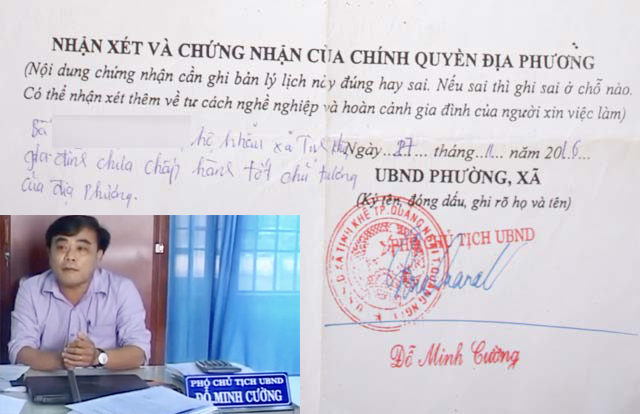 NHẬN XÉT VÀ CHỨNG NHẬN CỦA CHÍNH QUYỀN ĐỊA PHƯƠNG
(Nội dung chứng nhận cần ghi bản lý lịch này đúng hay sai. Nếu sai thì ghi sai ở chỗ nào.
Có thể nhận xét thêm về tư cách nghề nghiệp và hoàn cảnh gia đình của người xin việc làm)
Bà hộ khẩu xã Tịnh Khê
gia đình chưa chấp hành tốt chủ trương
của địa phương.
Ngày..27... tháng..11.. năm 2016
UBND PHƯỜNG, XÃ
(Ký tên, đóng dấu, ghi rõ họ và tên)
PHÓ CHỦ TỊCH UBND
U.B.N.D XÃ TỊNH KHÊ TP.QUẢNG NGÃI T.QUẢNG NGÃI
Đỗ Minh Cường
PHÓ CHỦ TỊCH UBND
ĐỖ MINH CƯỜNG